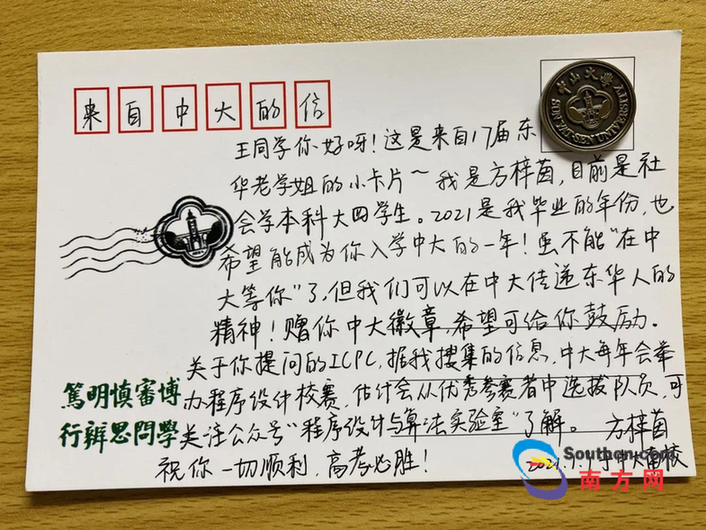 来自中大的信
中山大学
SUN YAT-SEN UNIVERSITY
王同学你好呀！这是来自17届东
华老学姐的小卡片～我是方梓茵，目前是社
会学本科大四学生。2021是我毕业的年份，也
希望能成为你入学中大的一年！虽不能“在中
大等你”了，但我们可以在中大传递东华人的
精神！赠你中大徽章，希望可给你鼓励。
关于你提问的ICPC，据我搜集的信息，中大每年会举
办程序设计校赛，估计会从优秀参赛者中选拔队员，可
关注公众号“程序设计与算法实验室”了解。
方梓茵
祝你一切顺利，高考必胜！
2021.
博學
審問
慎思
明辨
篤行
Southcn.com
南方网